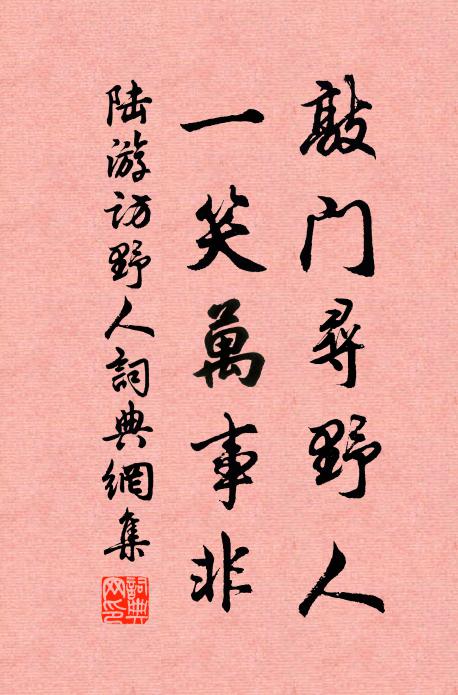 敲门尋野人
一笑萬事非
陆游访野人詞典網集
詞典网印